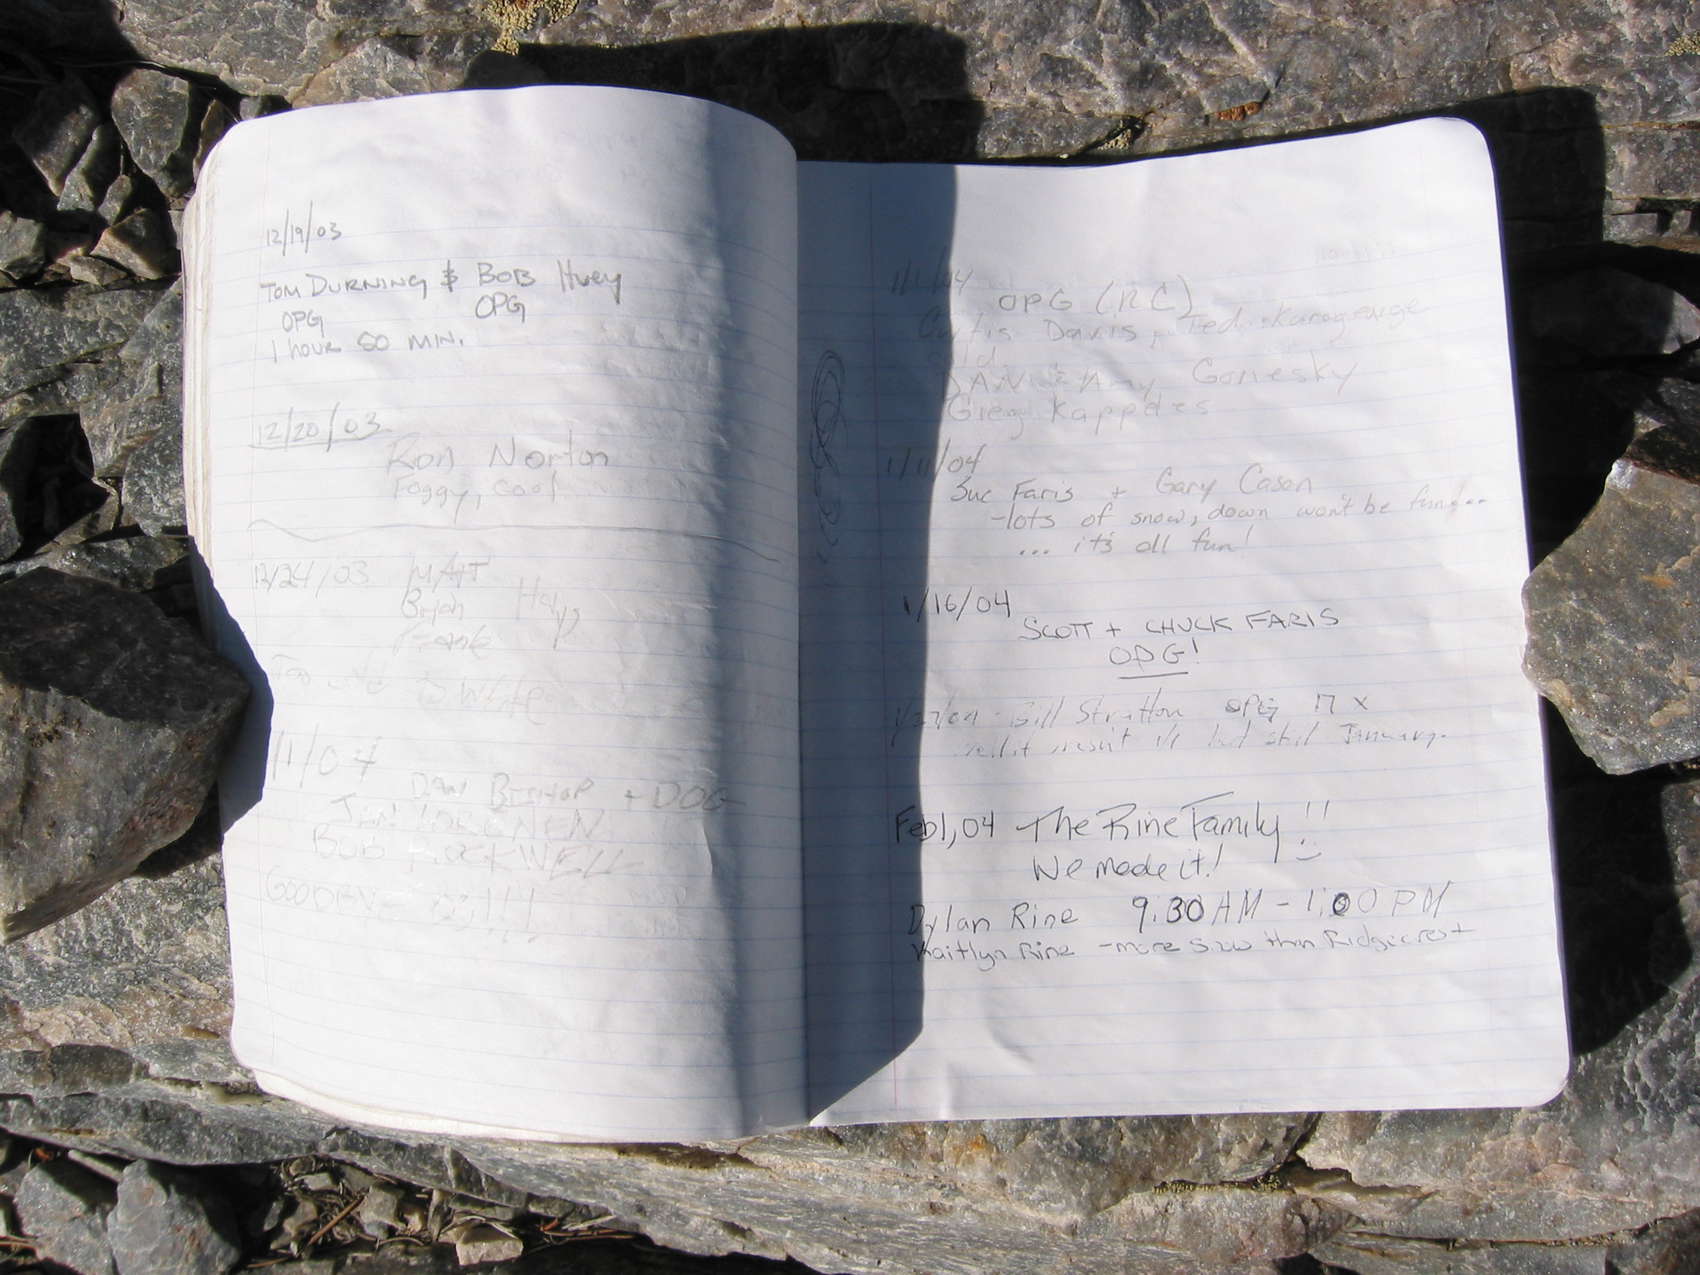 12/19/03
TOM DURNING & BOB Huey
OPG OPG
1 hour 50 MIN.
12/20/03
Ron Norton
Foggy, cool
12/24/03 MATT
Brian Hays
Frank
is white
1/1/04
DAN BISHOP + DOG
JIM
BOB ROCKWELL
1/1/04
OPG (RC)
Curtis Davis, Ted
DAN & Amy Gonesky
Greg Kappdes
1/11/04
Sue Faris + Gary Cason
-lots of snow, down won't be fun...
... it's all fun!
1/16/04
SCOTT + CHUCK FARIS
OPG!
Bill Stratton OPG 17 X
but still January.
Feb 1, 04 The Rine Family !!
We made it!
Dylan Rine 9:30 AM - 1:00 PM
Kaitlyn Rine - more snow than Ridgecrest